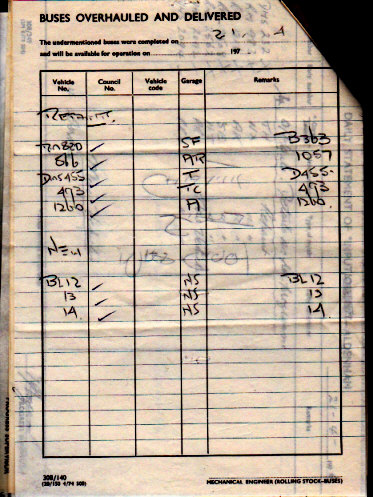 BUSES OVERHAULED AND DELIVERED
The undermentioned buses were completed on
and will be available for operation on 197
Vehicle No. Council No. Vehicle code Garage Remarks
RM820 ✓ SF B363
866 ✓ AR 1057
DMS455 ✓ T D455
493 ✓ TC 493
1260 ✓ A 1260
NEW
BL12 ✓ NS BL12
13 ✓ NS 13
14 ✓ NS 14
308/140
MECHANICAL ENGINEER (ROLLING STOCK—BUSES)